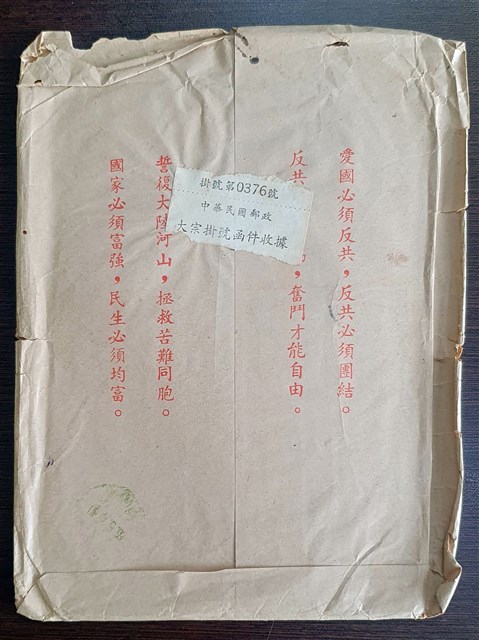 愛國必須反共，反共必須團結。
反共
，奮鬥才能自由。
誓復大陸河山，拯救苦難同胞。
國家必須富強，民生必須均富。
掛號第0376號
中華民國郵政
大宗掛號函件收據